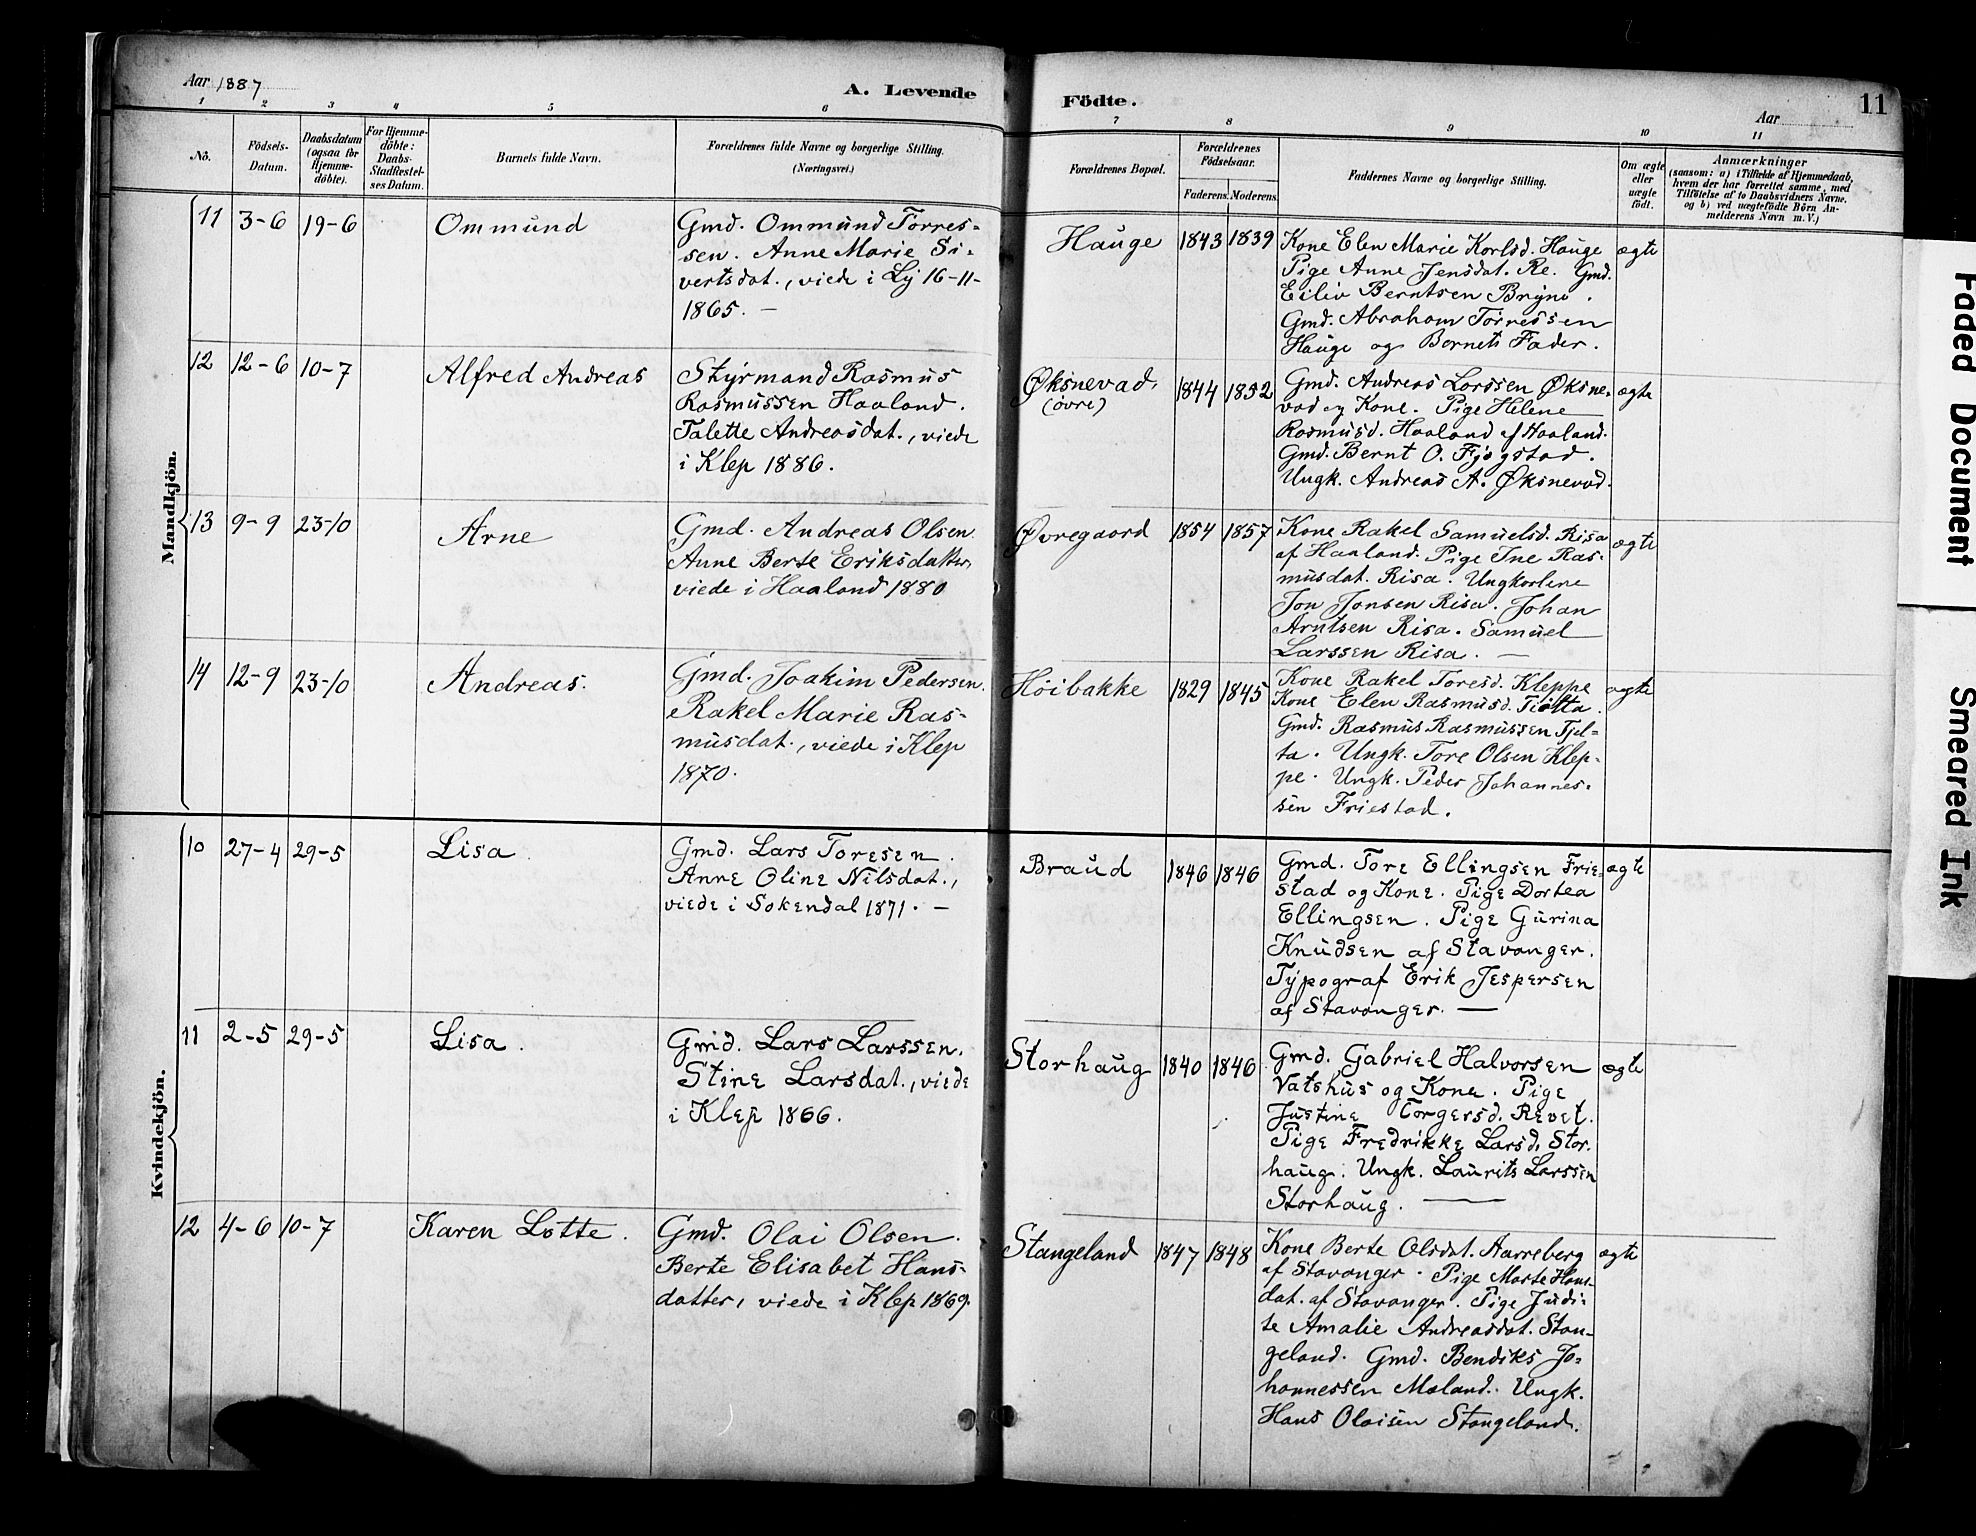 Aar 1887
A. Levende
Födte.
Aar
11
1 2 3 4 5 6 7 8 9 10 11
No.
Födsels-
Datum.
Daabsdatum
(ogsaa for
Hjemme-
döbte).
For Hjemme-
döbte:
Daabs-
Stadfæstel-
ses Datum.
Barnets fulde Navn.
Forældrenes fulde Navne og borgerlige Stilling.
(Næringsvei.)
Forældrenes Bopæl.
Forældrenes
Födselsaar.
Faderens. Moderens.
Faddernes Navne og borgerlige Stilling.
Om ægte
eller
uægte
födt.
Anmærkninger
(saasom: a) i Tilfælde af Hjemmedaab,
hvem der har forrettet samme, med
Tilföielse af to Daabsvidners Navne,
og b) ved uægtefödte Börn An-
melderens Navn m.V.)
Mandkjön.
11 3-6 19-6 Ommund
Gmd. Ommund Torres-
sen. Anne Marie Si-
vertsdat., viede i Ly 16-11-
1865. —
Hauge 1843 1839
Kone Elen Marie Karlsd. Hauge
Pige Anne Jensdat. Re. Gmd.
Eiliv Berntsen Bryne.
Gmd. Abraham Torressen
Hauge og Barnets Fader.
ægte
12 12-6 10-7 Alfred Andreas
Styrmand Rasmus
Rasmussen Haaland.
Talette Andreasdat., viede
i Klep 1886.
Øksnevad,
(øvre)
1844 1852
Gmd. Andreas Larssen Øksne-
vad og Kone. Pige Helene
Rasmusd. Haaland af Haaland.
Gmd. Bernt O. Fjøgstad.
Ungk. Andreas A. Øksnevad.
ægte
13 9-9 23-10 Arne
Gmd. Andreas Olsen.
Anne Berte Eriksdatter,
viede i Haaland 1880
Øvregaard 1854 1857
Kone Rakel Samuelsd. Risa
af Haaland. Pige Ine Ras-
musdat. Risa. Ungkarlene
Jon Jonsen Risa. Johan
Arntsen Risa. Samuel
Larssen Risa. —
ægte
14 12-9 23-10 Andreas.
Gmd. Joakim Pedersen.
Rakel Marie Ras-
musdat., viede i Klep
1870.
Høibakke 1829 1845
Kone Rakel Toresd. Kleppe
Kone Elen Rasmusd. Tjøtta.
Gmd. Rasmus Rasmussen Tjel-
ta. Ungk. Tore Olsen Klep-
pe. Ungk. Peder Johannes-
sen Friestad.
ægte
Kvindekjön.
10 27-4 29-5 Lisa.
Gmd. Lars Toresen.
Anne Oline Nilsdat.,
viede i Sokendal 1871. —
Braud 1846 1846
Gmd. Tore Ellingsen Frie-
stad og Kone. Pige Dortea
Ellingsen. Pige Gurina
Knudsen af Stavanger.
Typograf Erik Jespersen
af Stavanger. —
ægte
11 2-5 29-5 Lisa.
Gmd. Lars Larssen.
Stine Larsdat., viede
i Klep 1866.
Storhaug 1840 1846
Gmd. Gabriel Halvorsen
Vatshus og Kone. Pige
Justine Torgersd. Revet.
Pige Fredrikke Larsd. Stor-
haug. Ungk. Laurits Larssen
Storhaug. —
ægte
12 4-6 10-7 Karen Lotte.
Gmd. Olai Olsen.
Berte Elisabet Hans-
datter, viede i Klep 1869.
Stangeland 1847 1848
Kone Berte Olsdat. Aarreberg
af Stavanger. Pige Marte Hans-
dat. af Stavanger. Pige Judi-
te Amalie Andreasdat. Stan-
geland. Gmd. Bendiks Jo-
hannessen Mæland. Ungk.
Hans Olaisen Stangeland.
ægte
Faded Document
Smeared Ink